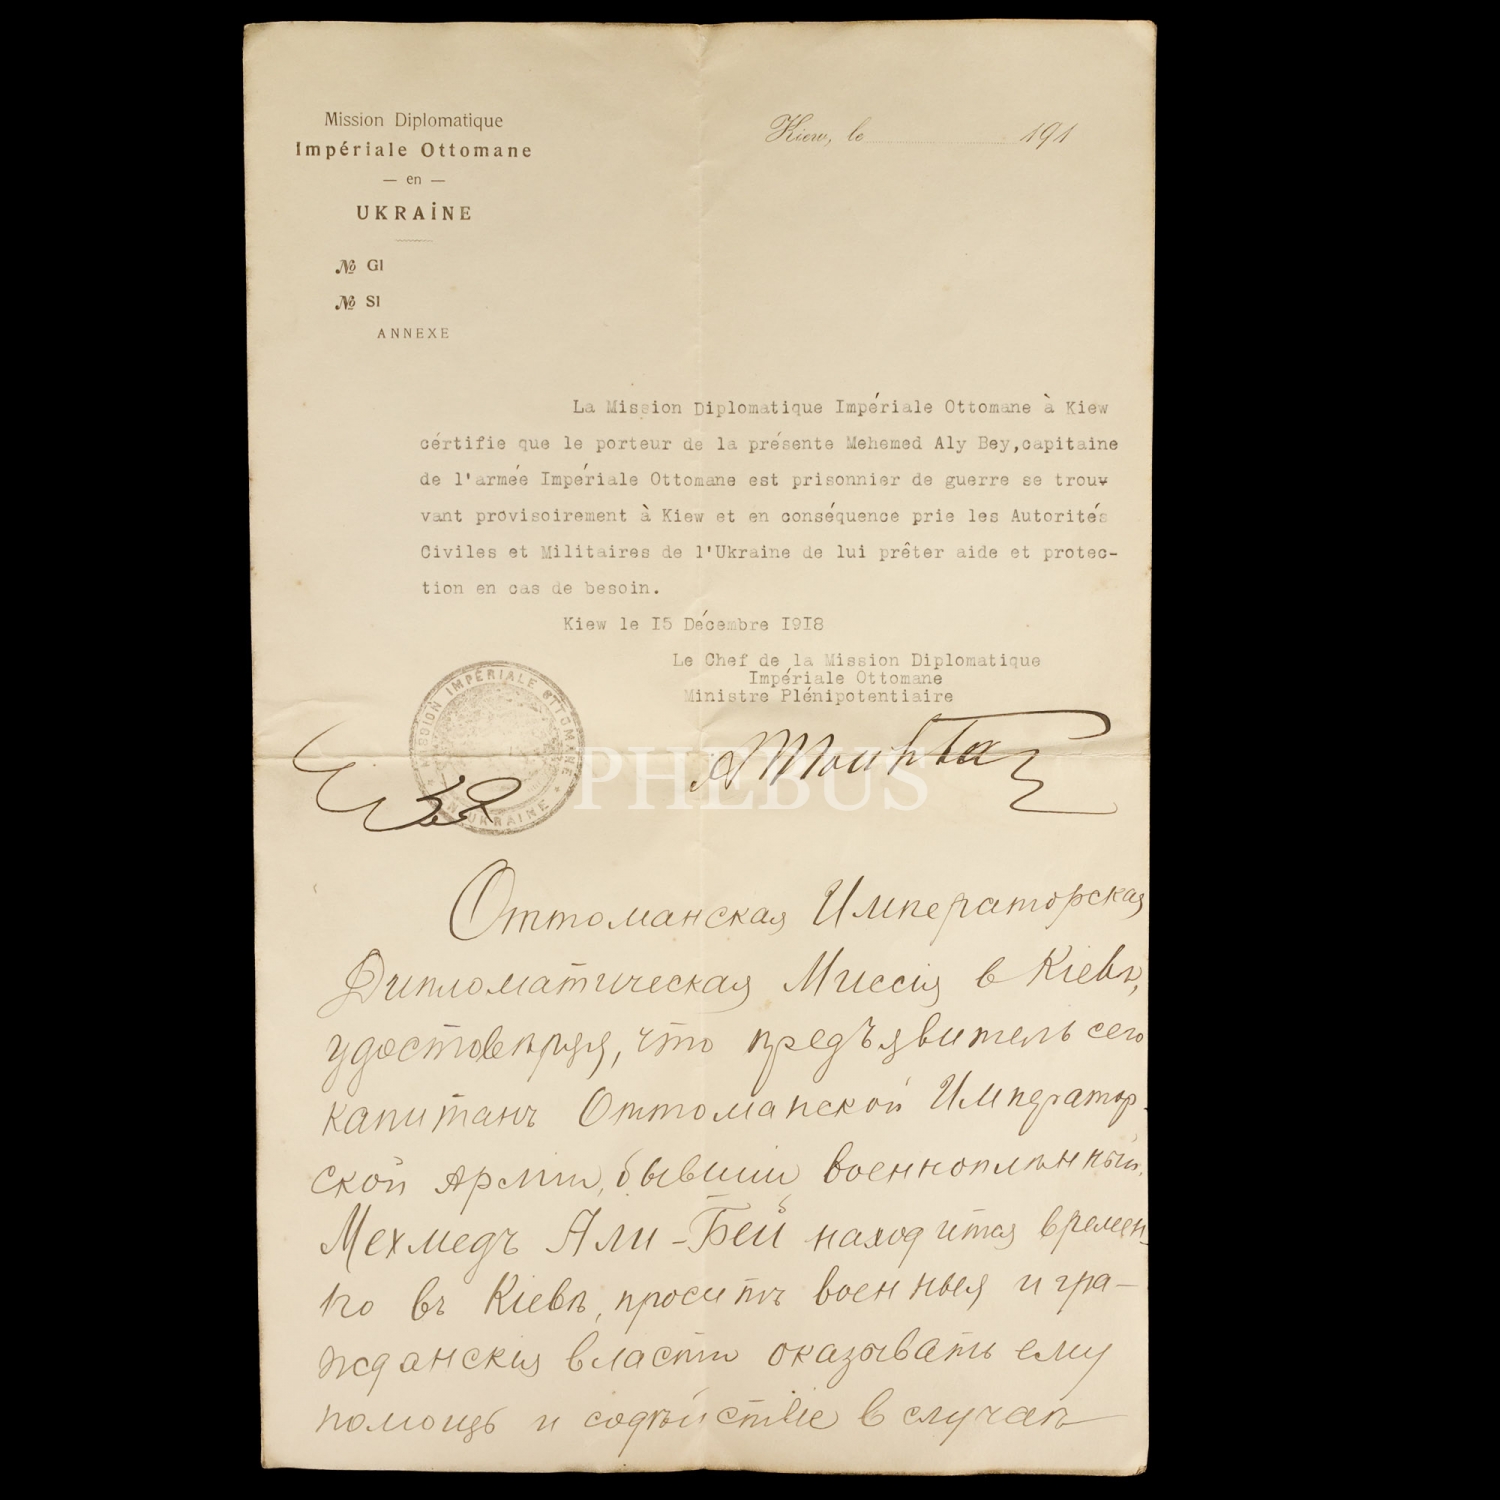 Mission Diplomatique
Impériale Ottomane
— en —
UKRAİNE
№ GI
№ SI
ANNEXE
Kiew, le 191
La Mission Diplomatique Impériale Ottomane à Kiew
cértifie que le porteur de la présente Mehemed Aly Bey,capitaine
de l'armée Impériale Ottomane est prisonnier de guerre se trouv
vant provisoirement à Kiew et en conséquence prie les Autorités
Civiles et Militaires de l'Ukraine de lui prêter aide et protec-
tion en cas de besoin.
Kiew le I5 Décembre I9I8
Le Chef de la Mission Diplomatique
Impériale Ottomane
Ministre Plénipotentiaire
MISSION IMPÉRIALE OTTOMANE
UKRAINE
PHEBUS
Оттоманская Императорская
Дипломатическая Миссія в Кіевѣ,
удостовѣряя, что предъявитель сего
капитанъ Оттоманской Император-
ской Арміи, бывшій военноплѣнный.
Мехмедъ Али-Бей находится времен-
но въ Кіевѣ, проситъ военныя и гра-
жданскія власти оказывать ему
помощь и содѣйствіе в случаѣ